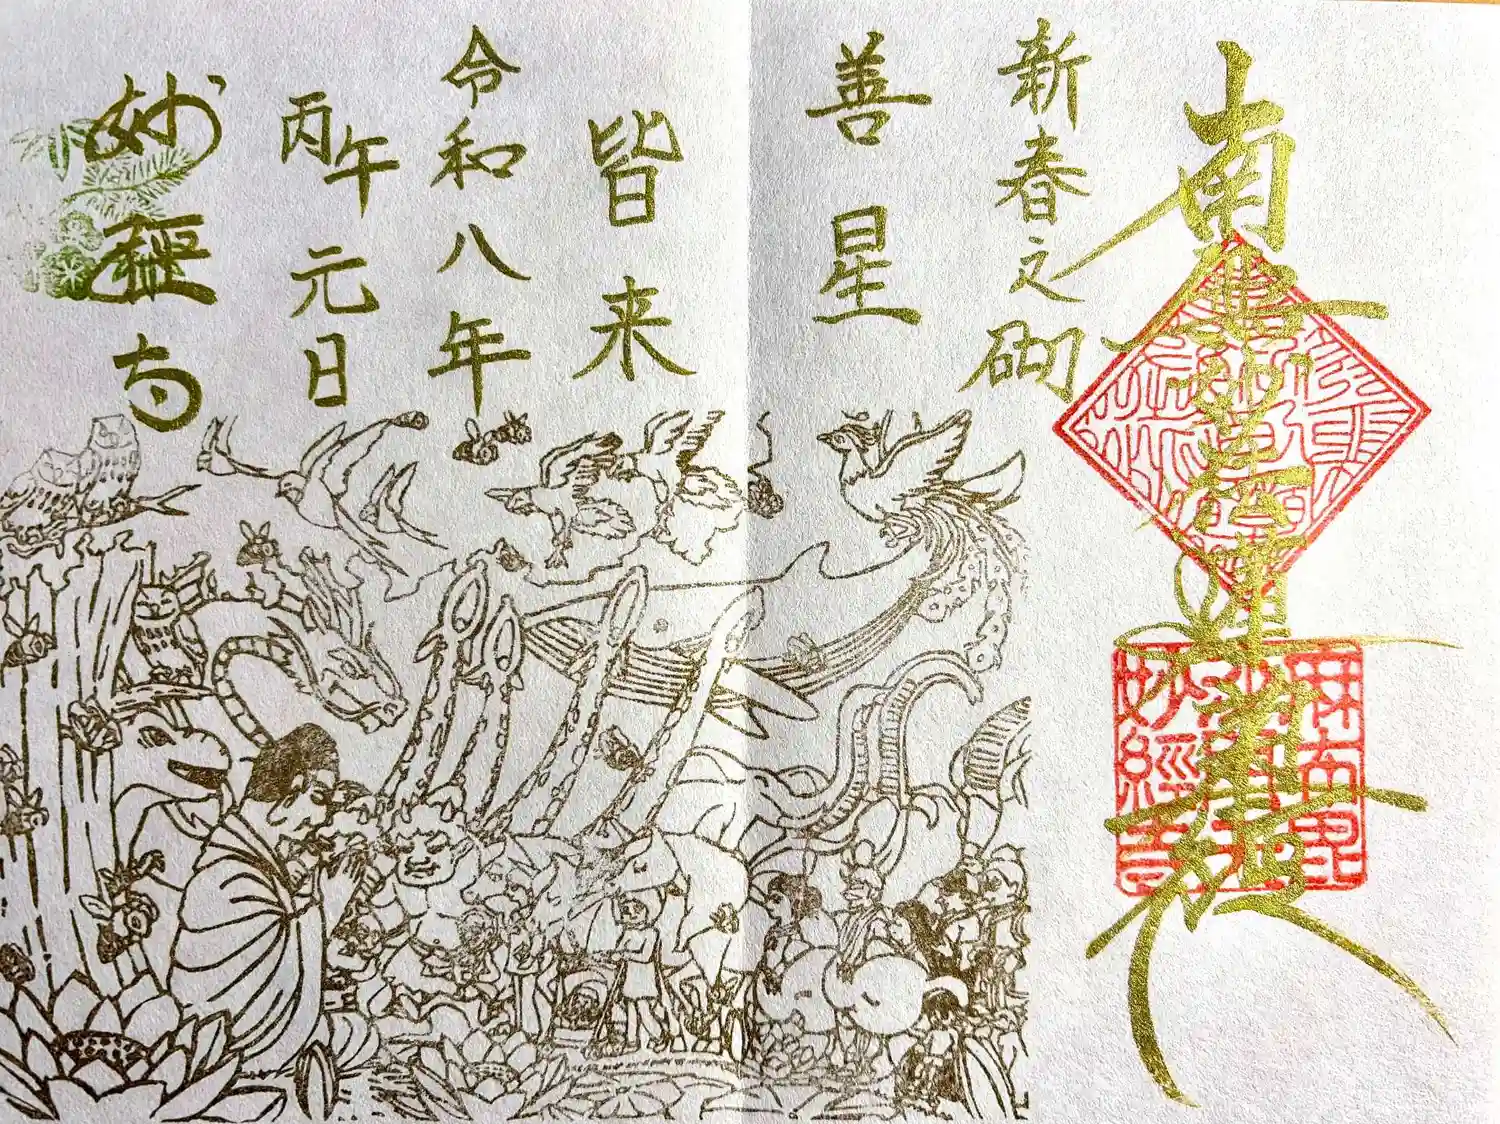 南無妙法蓮華経
新春之砌
善星
皆来
令和八年
丙午 元日
妙経寺